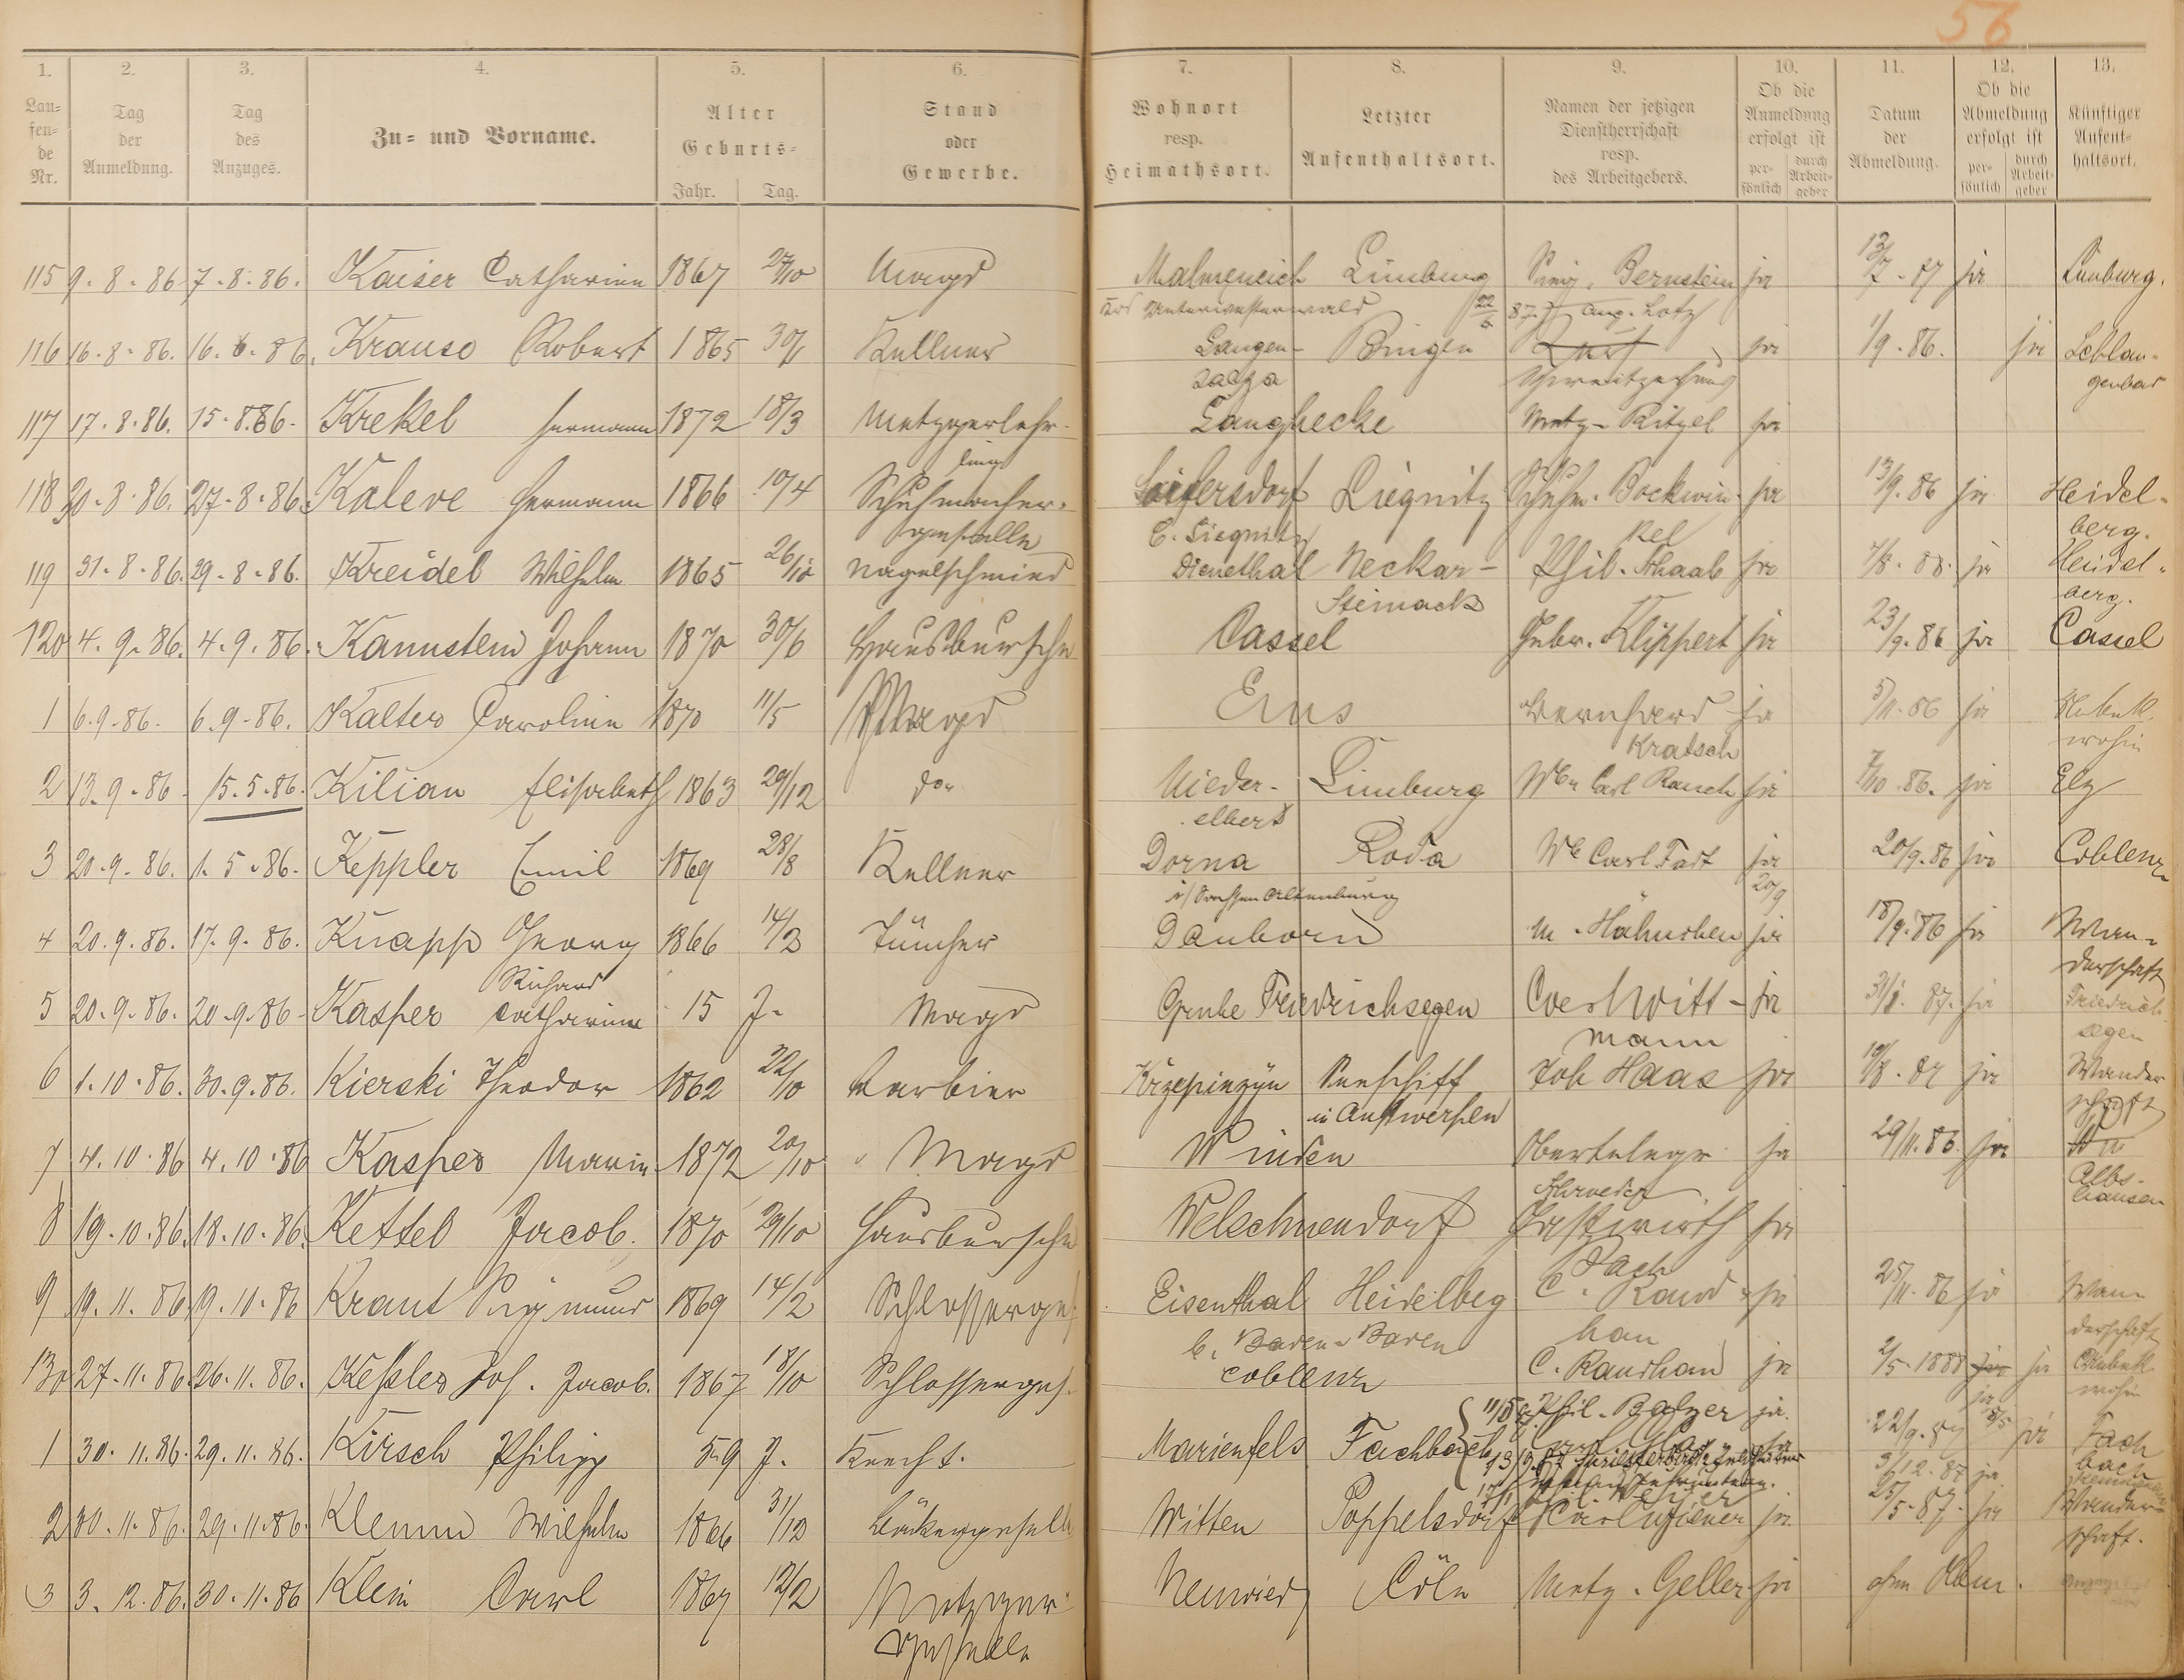 56
1. 2. 3. 4. 5. 6. 7. 8. 9. 10. 11. 12. 13.
Lau=fen=de Nr. Tag der Anmeldung. Tag des Anzuges. Zu= und Vorname. Alter Geburts= Jahr. Tag. Stand oder Gewerbe. Wohnort resp. Heimathsort. Letzter Aufenthaltsort. Namen der jetzigen Dienstherrschaft resp. des Arbeitgebers. Ob die Anmeldung erfolgt ist per=sönlich durch Arbeit=geber Datum der Abmeldung. Ob die Abmeldung erfolgt ist per=sönlich durch Arbeit=geber Künftiger Aufent=haltsort.
115 9. 8. 86 7. 8. 86. Kaiser Catharina 1867 27/10 Magd Malmeneich Limburg Bernstein ja 13/7. 87 ja Limburg.
Unterwesterwald 22/6 87. Aug. Lotz
116 16. 8. 86. 16. 6. 86. Krause Robert 1865 30/6 Kellner Langen- Bingen ja 1/9. 86. ja
salza
117 17. 8. 86. 15. 8. 86. Krekel Hermann 1872 18/3 Metzgerlehr- Langhecke Metz. Ritzel ja
ling
118 30. 8. 86. 27. 8. 86. Kaleve Hermann 1866 10/4 Schuhmacher- Seifersdorf Liegnitz Schuhm. Bockwin- ja 13/9. 86 ja Heidel-
geselle b. Liegnitz kel berg.
119 31. 8. 86. 29. 8. 86. Kreidel Wilhelm 1865 26/10 Nagelschmied Dienethal Neckar- Phil. Schaab ja 4/8. 88. ja Heidel-
Steinach berg.
120 4. 9. 86. 4. 9. 86. Kannstein Johann 1870 30/6 Hausbursche Cassel Gebr. Klippert ja 23/9. 86 ja Cassel
1 6. 9. 86. 6. 9. 86. Kalter Carolina 1870 11/5 Magd Ems Bernhard ja 5/11. 86 ja Unbek.
Kratsch wohin
2 13. 9. 86 15. 5. 86. Kilian Elisabeth 1863 29/12 do. Nieder- Limburg Wwe. Carl Rauch ja 7/10. 86. ja Elz
elbert
3 20. 9. 86. 1. 5. 86. Keppler Emil 1869 28/8 Kellner Dorna Roda We Carl Fast ja 20/9. 86 ja Coblenz
i/ Sachsen Altenburg 20/9
4 20. 9. 86. 17. 9. 86. Knapp Georg 1866 14/3 Tüncher Dauborn M. Hähnchen ja 18/9. 86 ja Wan-
Richard derschaft
5 20. 9. 86. 20. 9. 86 Kasper Catharina 15 J. Magd Grube Friedrichsegen Witt- ja 31/1. 87. ja Friedrich
mann segen
6 1. 10. 86. 30. 9. 86. Kierski Theodor 1862 22/10 Barbier Seeschiff Joh Haas ja 10/8. 87 ja Wander
in Antwerpen schaft
7 4. 10. 86 4. 10. 86 Kasper Maria 1872 20/10 Magd Winden Obertelegr. ja 29/11. 86. ja
Schroeder Albs-
hausen
8 19. 10. 86. 18. 10. 86. Kettel Jacob. 1870 29/10 Hausbursche Welschneudorf Gastwirth ja
Bach
9 19. 11. 86. 19. 10. 86 Kraut Sigmund 1869 14/2 Schlosserges Eisenthal Heidelbeg C. Rand- ja 25/11. 86 ja Wan-
b. Baden-Baden han derschaft
130 27. 11. 86. 26. 11. 86. Keßler Jos. Jacob. 1867 18/10 Schlosserges. Coblenz C. Randhan ja 2/5. 1888 ja ja Unbek.
wohin
11/5 Phil. Balzer ja.
1 30. 11. 86. 29. 11. 86. Kirsch Philipp 59 J. Knecht. Marienfels Fachbach 22/9. 87 ja Fach
3/12. 87 ja bach
2 30. 11. 86. 29. 11. 86. Klemm Wilhelm 1866 31/12 Bäckergeselle Witten Poppelsdorf ja 25/5. 87. ja Wander-
schaft.
3 3. 12. 86. 30. 11. 86 Klein Carl 1867 12/2 Metzger- Neuwied Cöln Metz. Geller ja ohne Abm.
geselle